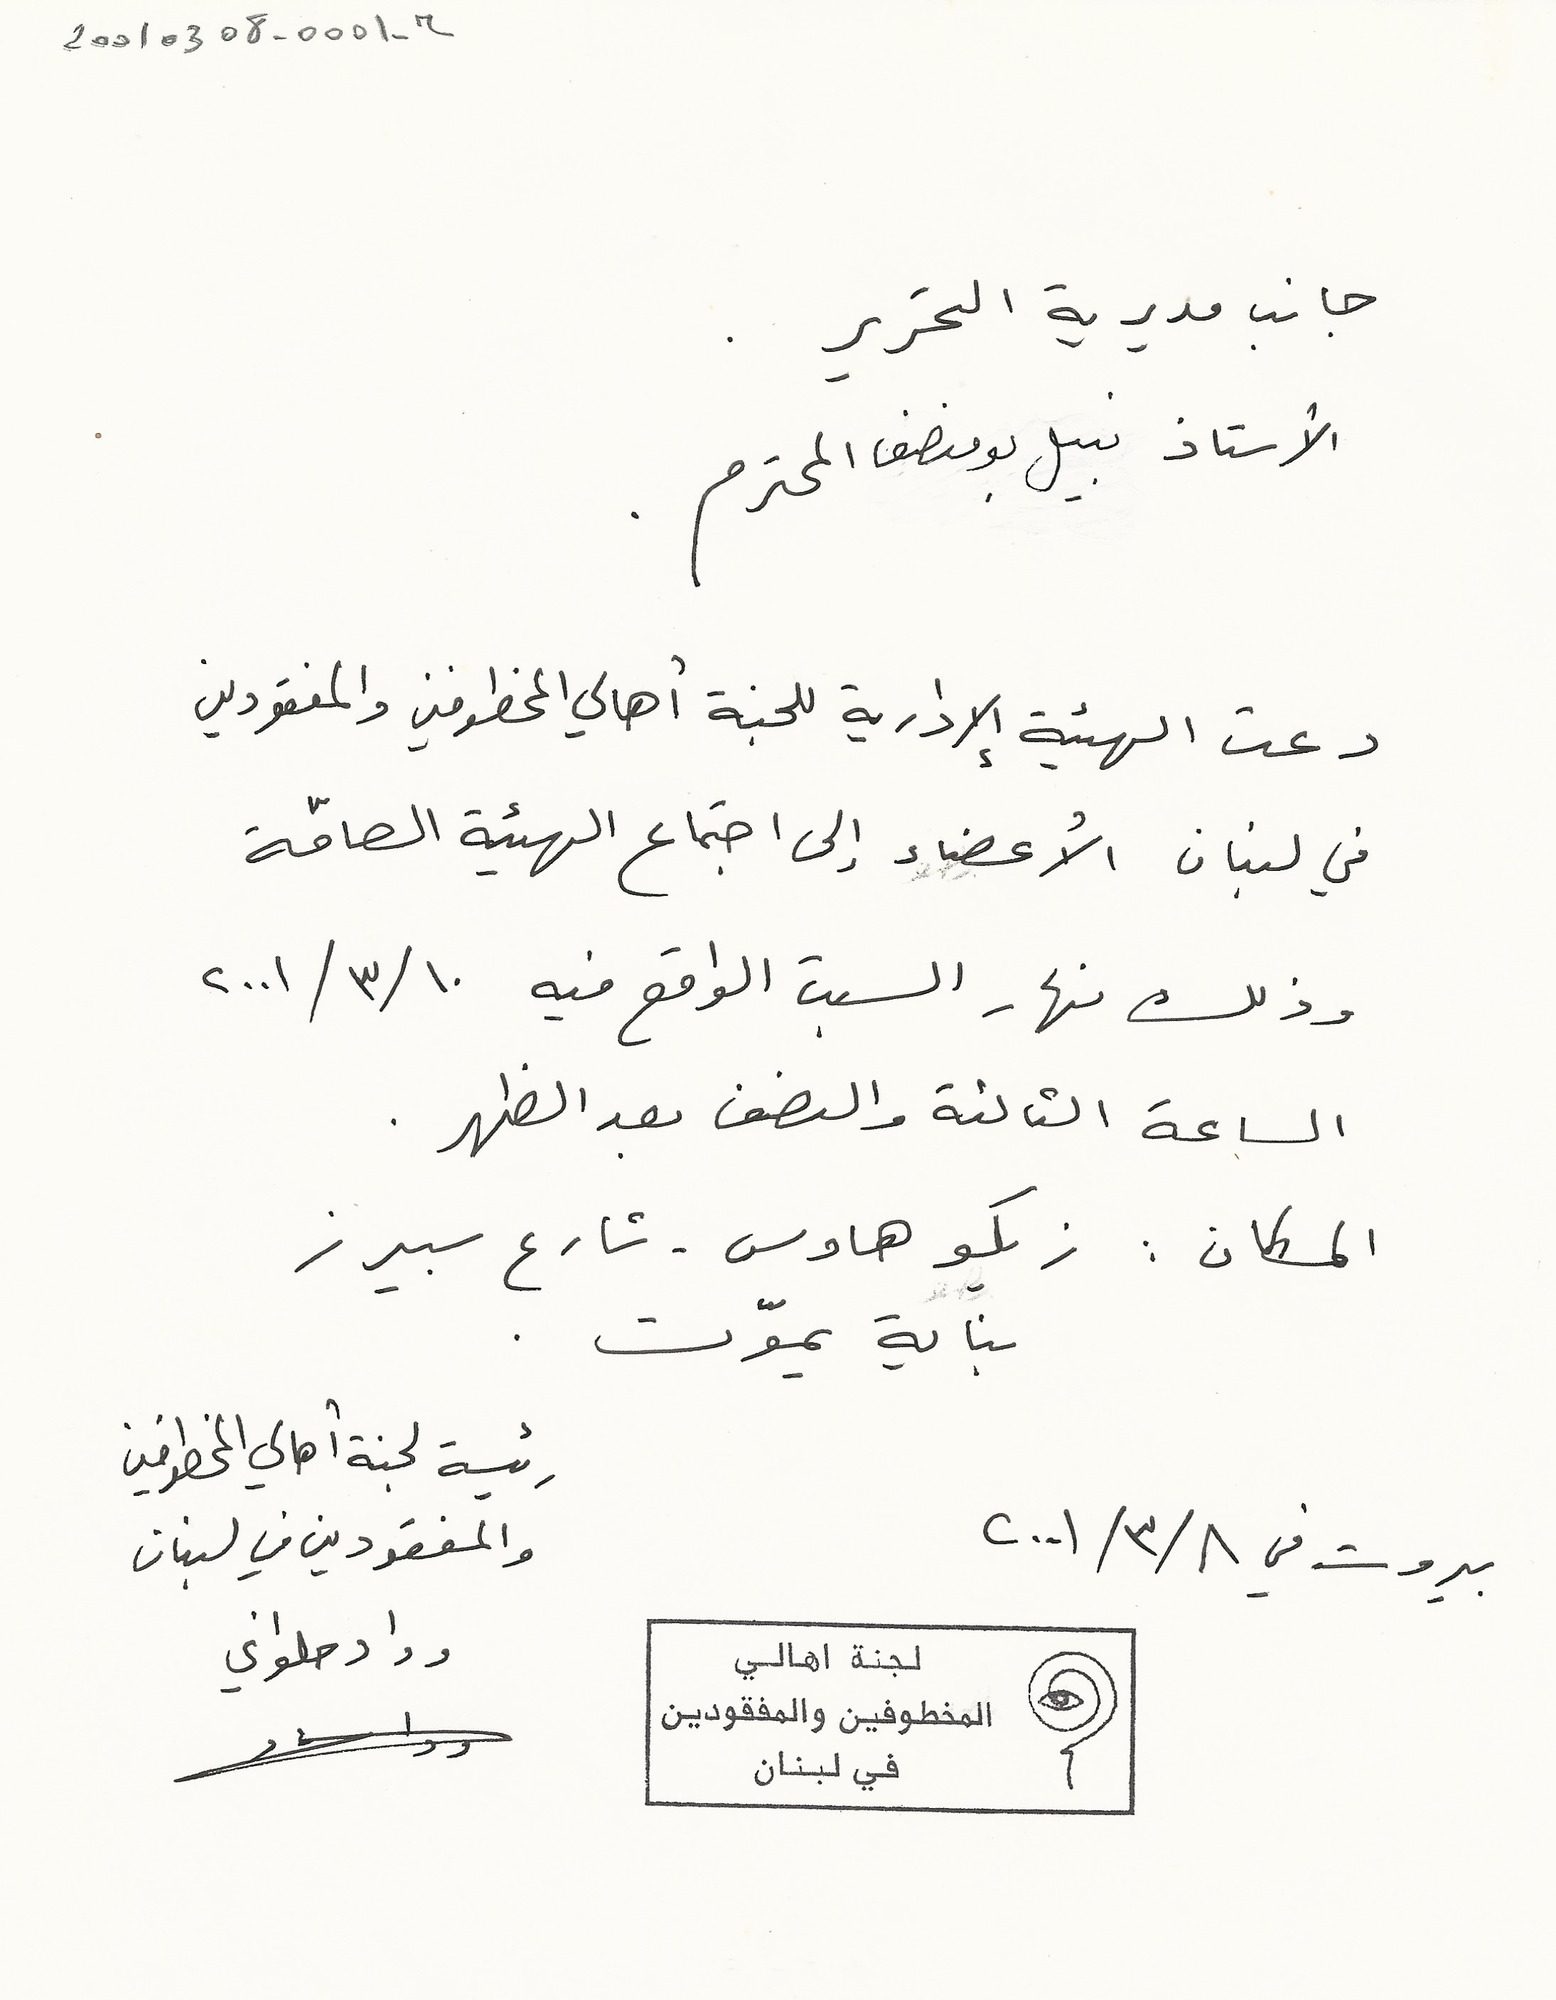 20010308-0001-m
جانب مديرية التحرير .
الأستاذ نبيل بومنصف المحترم .
دعت الهيئة الإدارية للجنة أهالي المخطوفين والمفقودين
في لبنان الأعضاء إلى اجتماع الهيئة العامّة
وذلك نهار السبت الواقع فيه ١٠/٣/٢٠٠١
الساعة الثالثة والنصف بعد الظهر .
المكان : زيكو هاوس - شارع سبيرز
بناية يموّت .
رئيسة لجنة أهالي المخطوفين
والمفقودين في لبنان
وداد حلواني
بيروت في ٨/٣/٢٠٠١
لجنة اهالي
المخطوفين والمفقودين
في لبنان